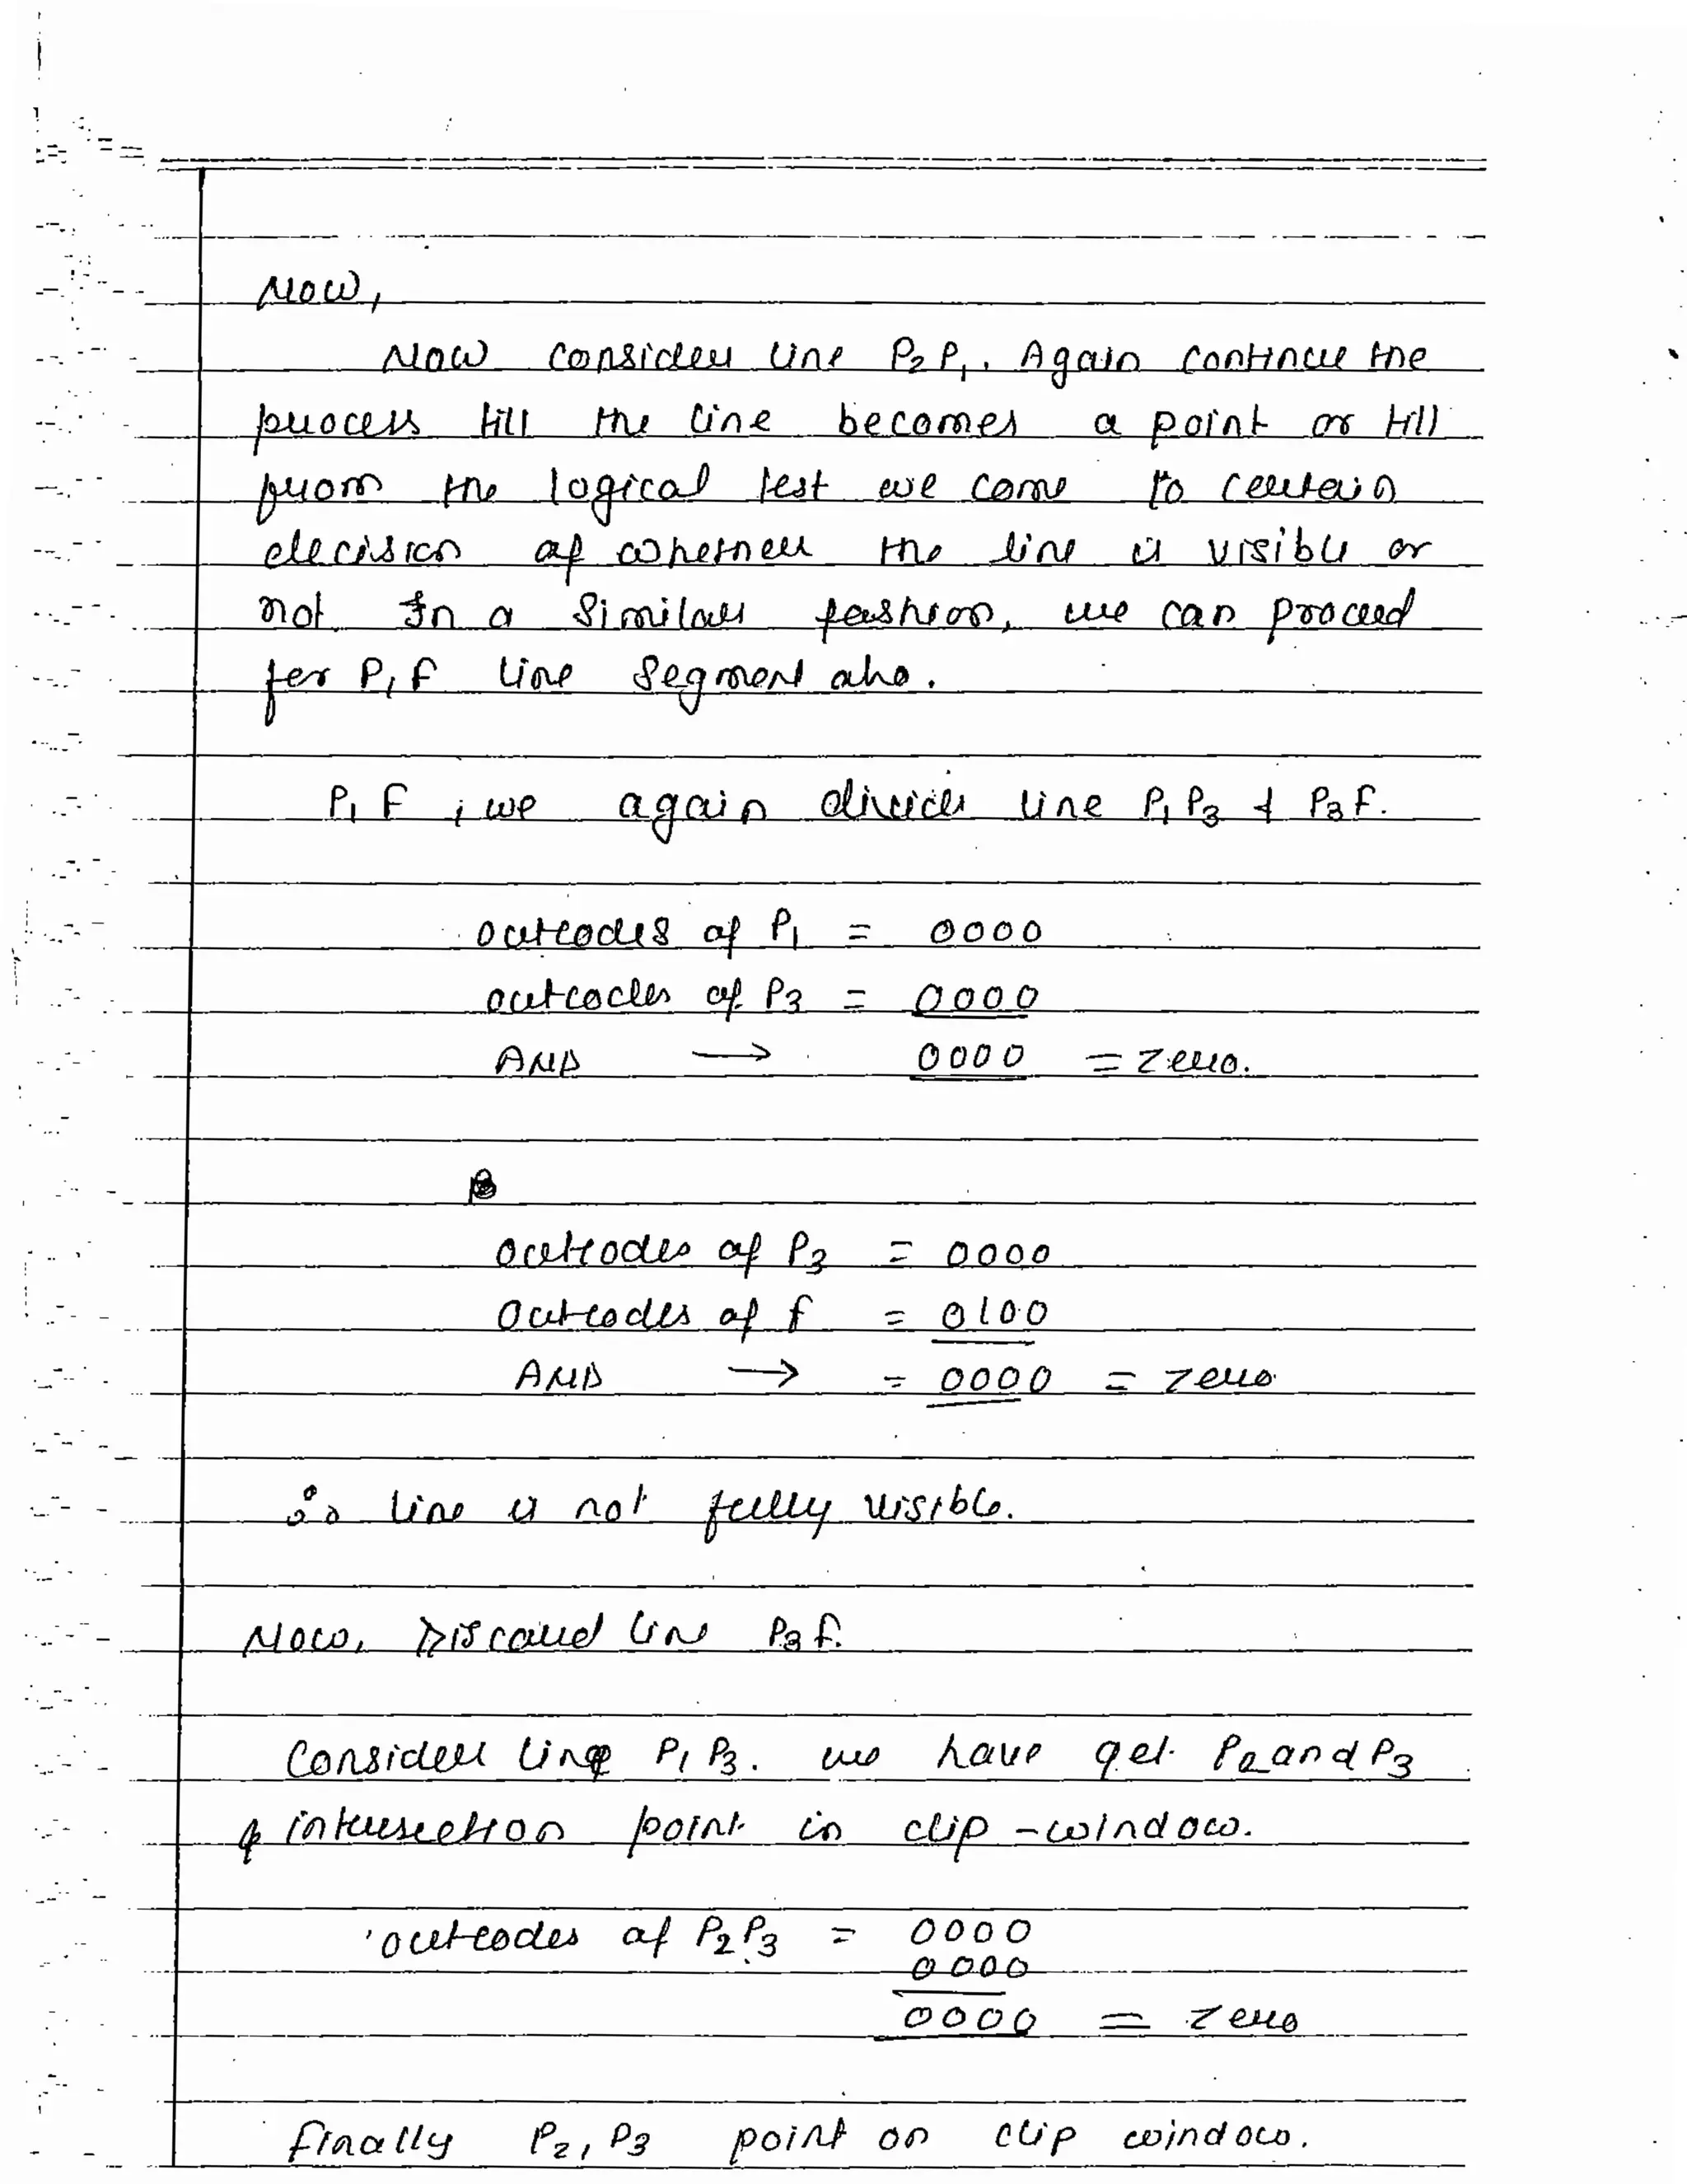 Now,
Now consider line P2 P1. Again continue the
process till the line becomes a point or till
from the logical test we come to certain
decision of whether the line is visible or
not. In a similar fashion, we can proceed
for P1 F line segment also.
P1 F ; we again divide line P1 P3 & P3 F.
outcodes of P1 = 0000
outcodes of P3 = 0000
AND → 0000 = zero.
outcodes of P3 = 0000
outcodes of F = 0100
AND → = 0000 = zero
∴ line is not fully visible.
Now, Discard line P3 F.
Consider line P1 P3. we have get P2 and P3
intersection point in clip-window.
outcodes of P2 P3 = 0000
0000
0000 = zero
finally P2, P3 point on clip window.